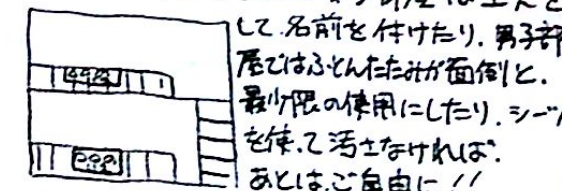 して.名前を付けたり.男子部
屋ではふとんたたみが面倒と.
最少限の使用にしたり.シーツ
を使って汚さなければ.
あとは.ご自由に!!